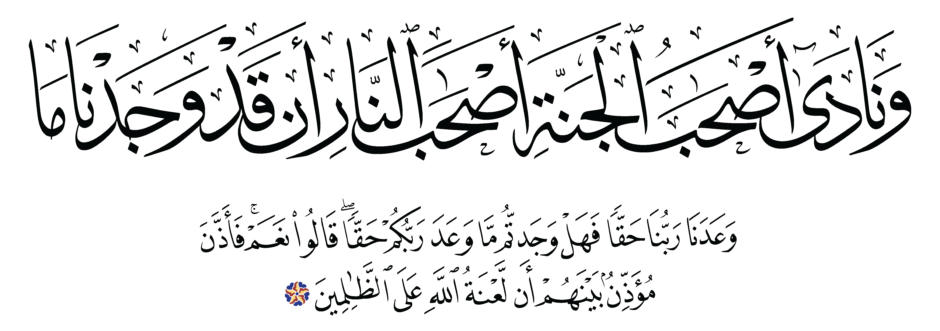 وَنَادَىٰٓ أَصۡحَٰبُ ٱلۡجَنَّةِ أَصۡحَٰبَ ٱلنَّارِ أَن قَدۡ وَجَدۡنَا مَا
وَعَدَنَا رَبُّنَا حَقّٗا فَهَلۡ وَجَدتُّم مَّا وَعَدَ رَبُّكُمۡ حَقّٗاۖ قَالُواْ نَعَمۡۚ فَأَذَّنَ
مُؤَذِّنُۢ بَيۡنَهُمۡ أَن لَّعۡنَةُ ٱللَّهِ عَلَى ٱلظَّٰلِمِينَ